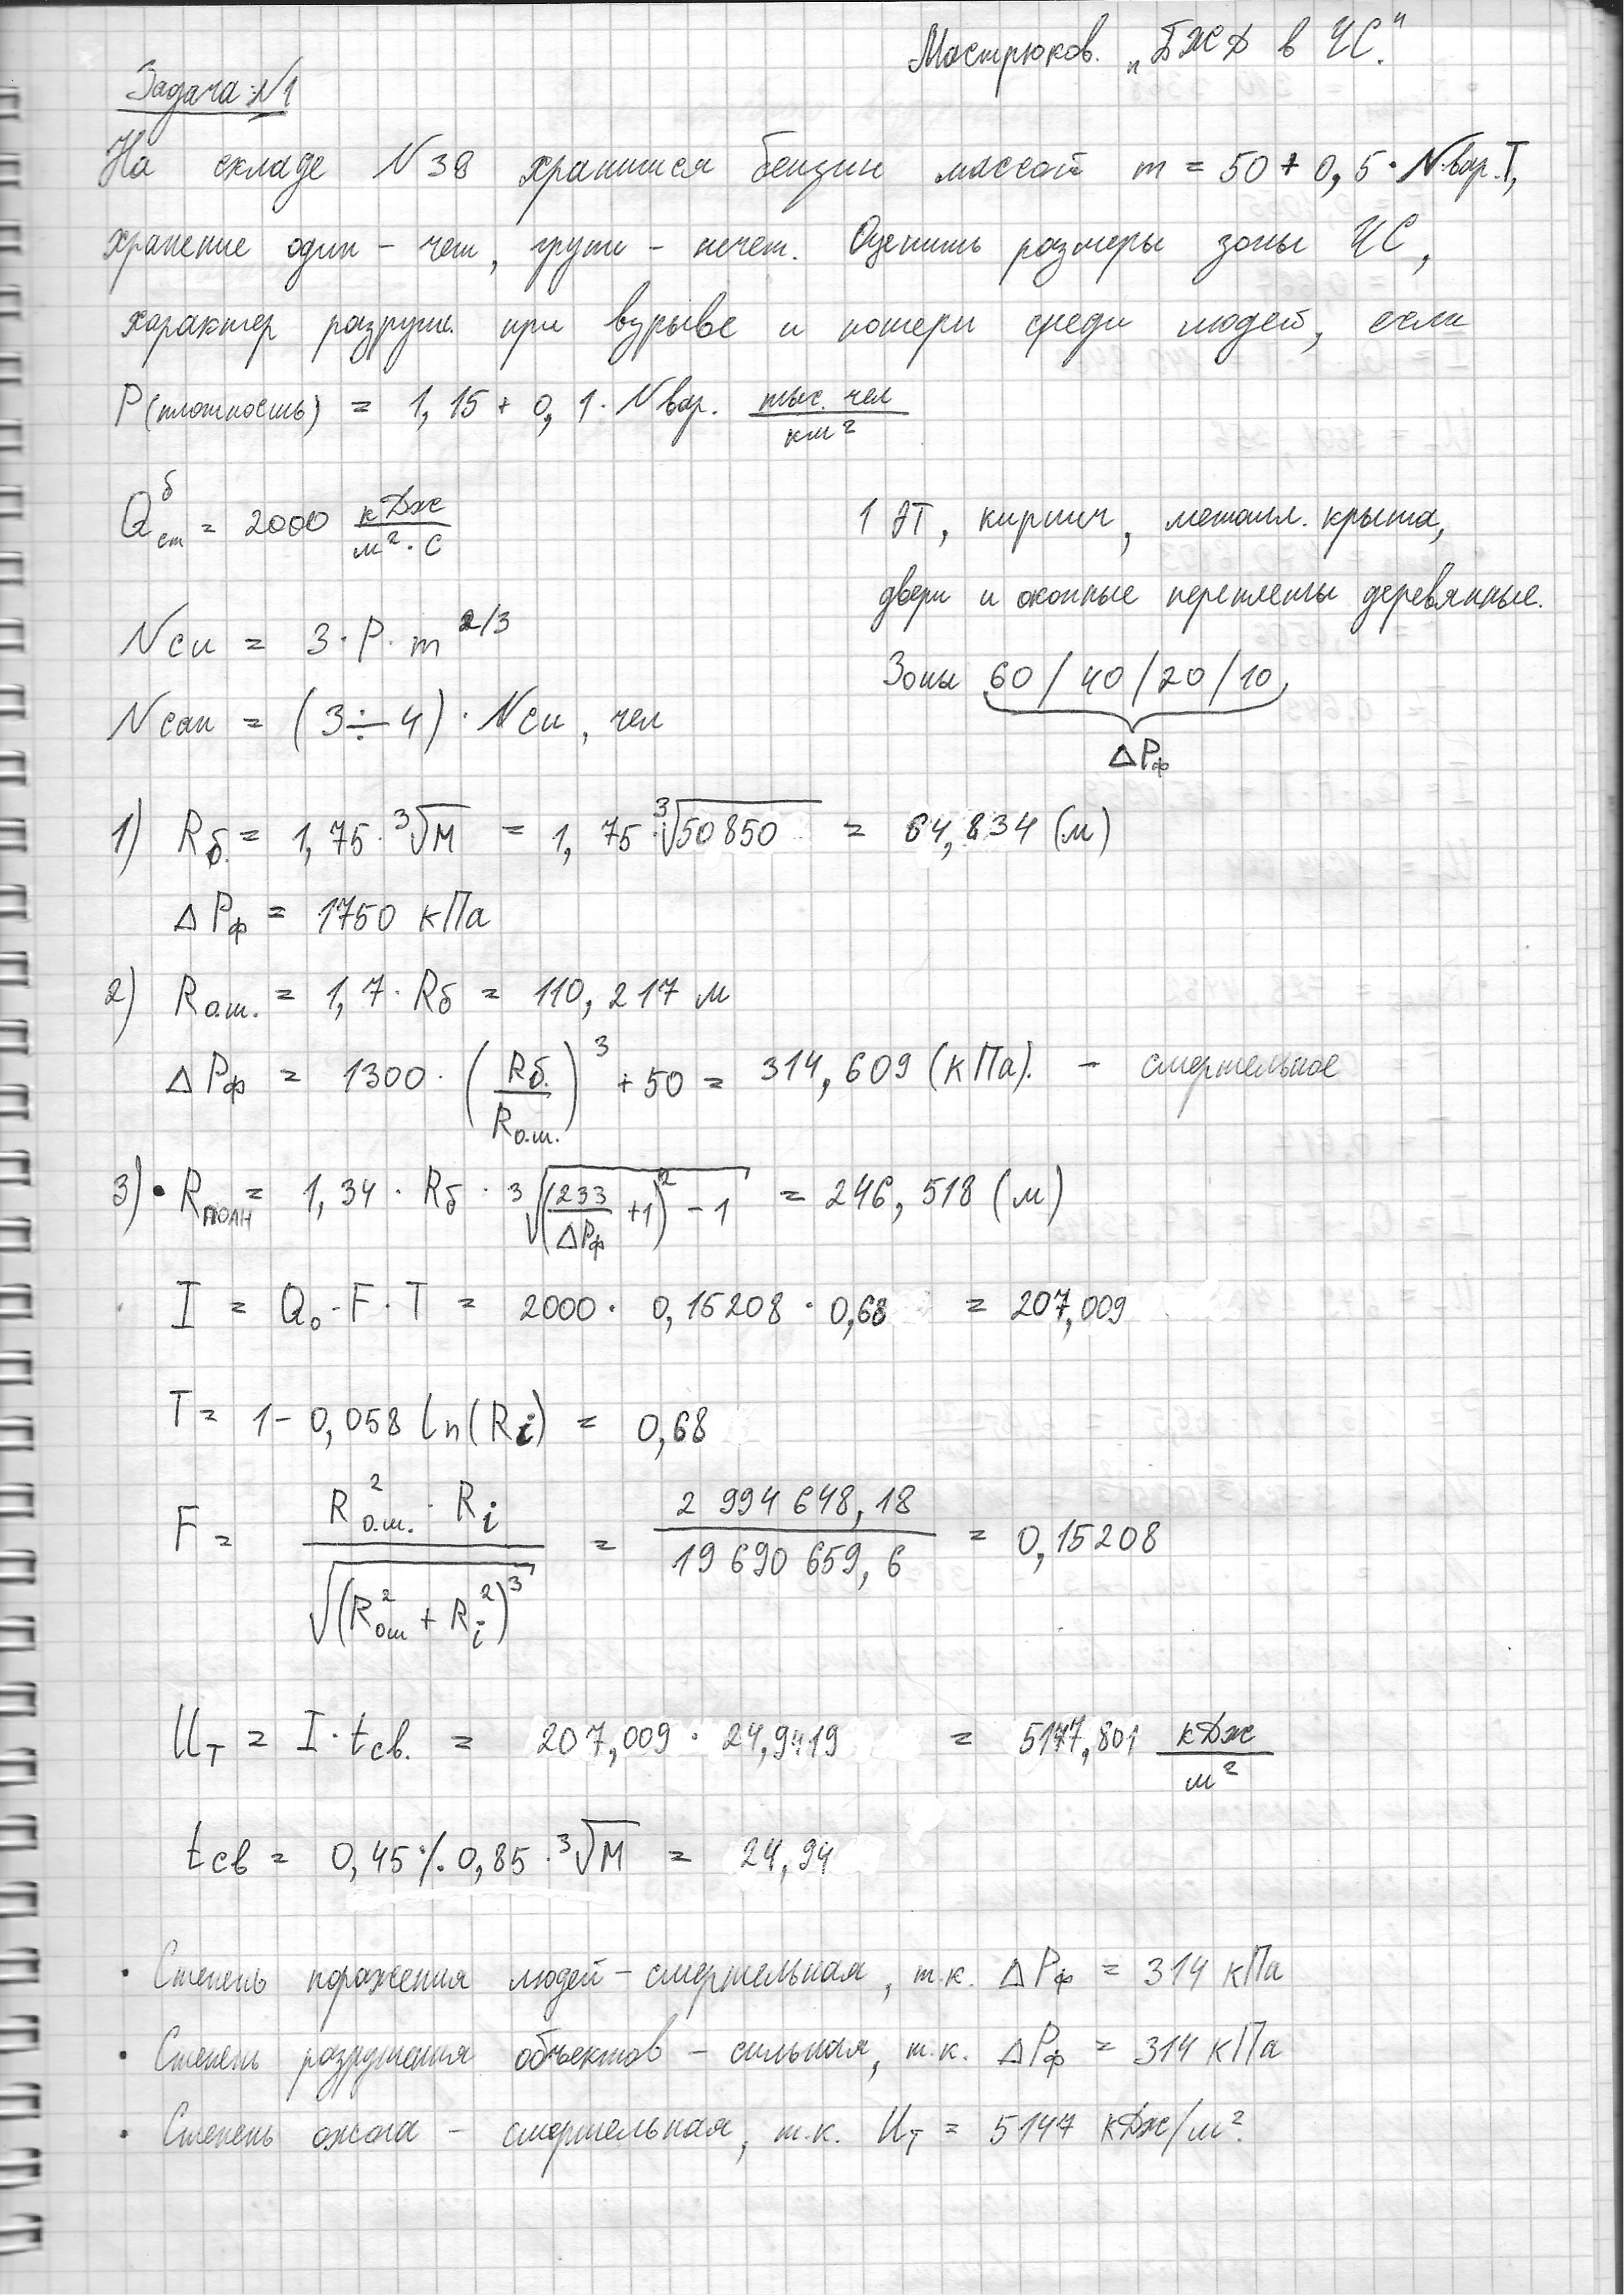 Мастрюков. „БЖД в ЧС."
Задача №1
На складе N38 хранится бензин массой m = 50 + 0,5 · Nвар. Т,
хранение один – чет, групп – нечет. Оценить размеры зоны ЧС,
характер разруш. при взрыве и потери среди людей, если
P(плотность) = 1,15 + 0,1 · Nвар. тыс. чел / км²
Qстᵟ = 2000 кДж / м² · С
1 ЭТ, кирпич, металл. крыша,
двери и оконные переплеты деревянные.
Nси = 3 · P · m^2/3
Зоны 60 / 40 / 20 / 10
ΔPф
Nсан = (3 ÷ 4) · Nси, чел
1) Rб. = 1,75 · ³√M = 1,75 · ³√50850 = 64,834 (м)
ΔPф = 1750 кПа
2) Rо.ш. = 1,7 · Rб = 110,217 м
ΔPф = 1300 · (Rб. / Rо.ш.)³ + 50 = 314,609 (кПа). – смертельное
3) • Rполн = 1,34 · Rб · ³√(233/ΔPф + 1)² – 1 = 246,518 (м)
I = Q₀ · F · T = 2000 · 0,15208 · 0,68 = 207,009
T = 1 – 0,058 ln(Ri) = 0,68
F = R²о.ш. · Ri / √(R²ош + Ri²)³ = 2 994 648,18 / 19 690 659,6 = 0,15208
Uт = I · tсв. = 207,009 · 24,9419 = 5177,801 кДж / м²
tсв = 0,45 ⁒ 0,85 · ³√M = 24,94
• Степень поражения людей – смертельная, т.к. ΔPф = 314 кПа
• Степень разрушения объектов – сильная, т.к. ΔPф = 314 кПа
• Степень ожога – смертельная, т.к. Uт = 5147 кДж/м².